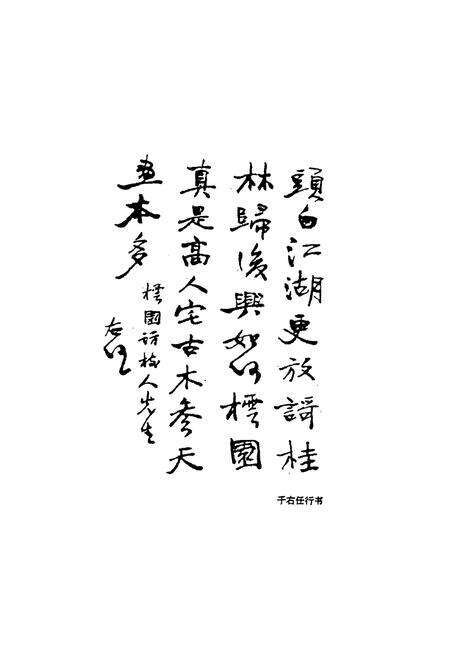 頭白江湖更放謌桂
林歸後興如何樗園
真是高人宅古木參天
畫本多
樗園訪樹人先生
右任
于右任行书